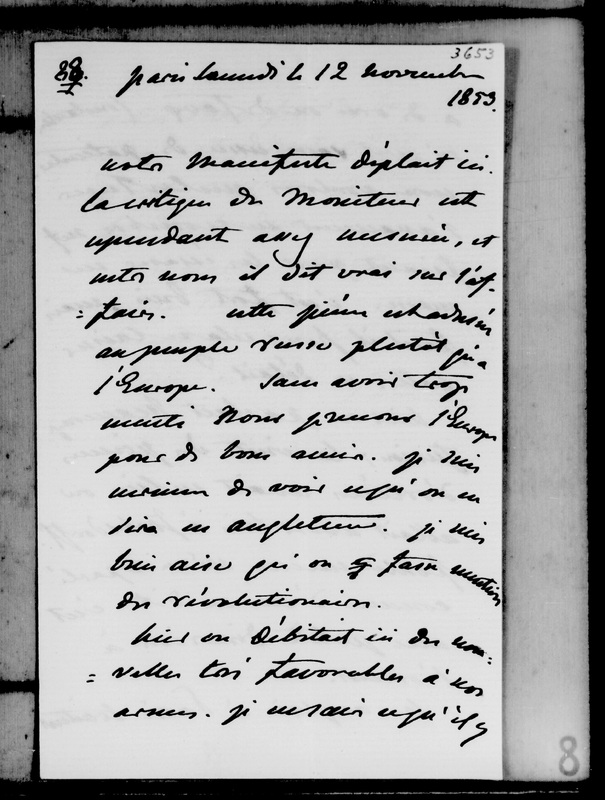 3653
28. paris samedi le 12 novembre
1853.
notre Manifeste déplait ici.
la critique du Moniteur est
cependant assez mesurée, et
entre nous il dit vrai sur l'af-
=faire. cette pièce est adressée
au peuple russe plutôt qu'a
l'Europe. Sans avoir trop
menti nous prenons l'Europe
pour de bons amis. je suis
curieuse de voir ce qu'on en
dira en angleterre. je suis
bien aise qu'on y fasse mention
des révolutionaires.
hier on débitait ici des nou-
=velles très favorables à nos
armes. je ne sais ce qu'il y
8